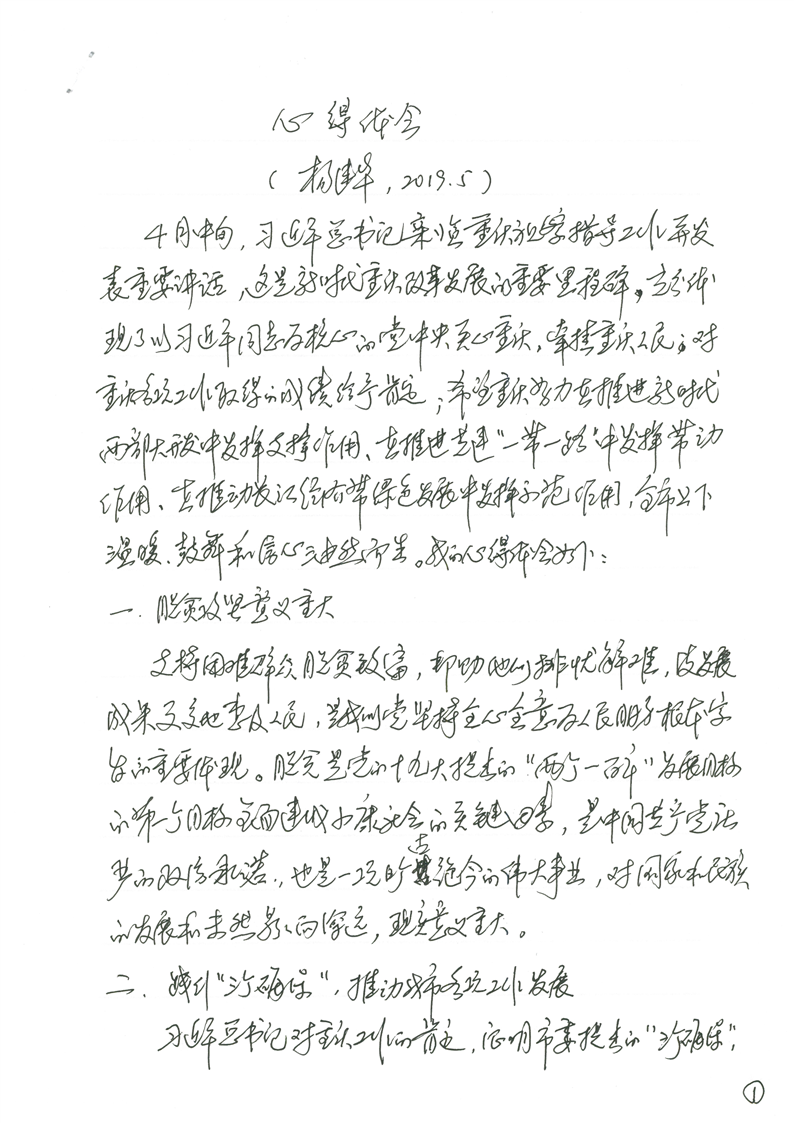 心得体会
(杨建华,2019.5)
4月中旬,习近平总书记来临重庆视察指导工作并发
表重要讲话,这是新时代重庆改革发展的重要里程碑。充分体
现了以习近平同志为核心的党中央关心重庆,牵挂重庆人民;对
重庆各项工作取得的成绩给予肯定;希望重庆努力在推进新时代
西部大开发中发挥支撑作用、在推进共建"一带一路"中发挥带动
作用、在推动长江经济带绿色发展中发挥示范作用,全市上下
温暖、鼓舞和信心油然而生。我的心得体会如下:
一、脱贫攻坚意义重大
支持困难群众脱贫致富,帮助他们排忧解难,使发展
成果更多地惠及人民,是我们党坚持全心全意为人民服务根本宗
旨的重要体现。脱贫是党的十九大提出的"两个一百年"发展目标
的第一个目标全面建成小康社会的关键因素,是中国共产党庄
严的政治承诺,也是一项旷古绝今的伟大事业,对国家和民族
的发展和未来影响深远,现实意义重大。
二、践行"三个确保",推动我市各项工作发展
习近平总书记对重庆工作的肯定,证明市委提出的"三个确保",
1